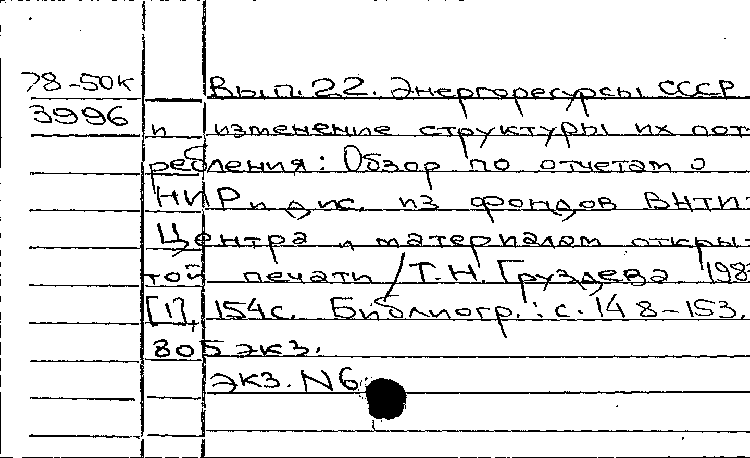 78-50к
3996
Вып. 22. Энергоресурсы СССР
и изменение структуры их пот-
ребления: Обзор по отчетам о
НИР и дис. из фондов ВНТИ-
Центра и материалам откры-
той печати / Т.Н. Груздева 198
[1], 154с. Библиогр.: с. 148-153.
805 экз.
Экз. N6